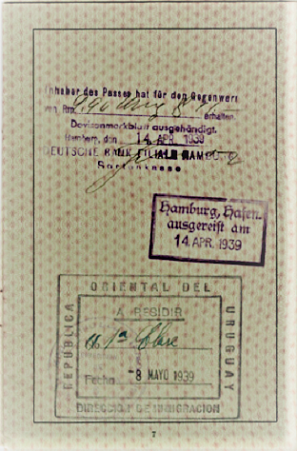 Inhaber des Passes hat für den Gegenwert
von Rm. erhalten.
Devisenmerkblatt ausgehändigt.
Hamburg, den 14. APR. 1939
DEUTSCHE BANK FILIALE HAMBURG
Sortenkasse
Hamburg, Hafen.
ausgereist am
14. APR. 1939
REPUBLICA ORIENTAL DEL URUGUAY
A RESIDIR
Fecha -8 MAYO 1939
DIRECCION DE INMIGRACION
7